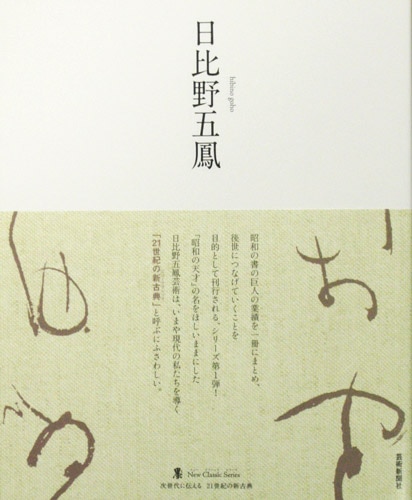 日比野五鳳
hibino goho
昭和の書の巨人の業績を一冊にまとめ、
後世につなげていくことを
目的として刊行される、シリーズ第1弾!
「昭和の天才」の名をほしいままにした
日比野五鳳芸術は、いまや現代の私たちを導く
「21世紀の新古典」と呼ぶにふさわしい。
墨 New Classic Series
次世代に伝える 21世紀の新古典
芸術新聞社